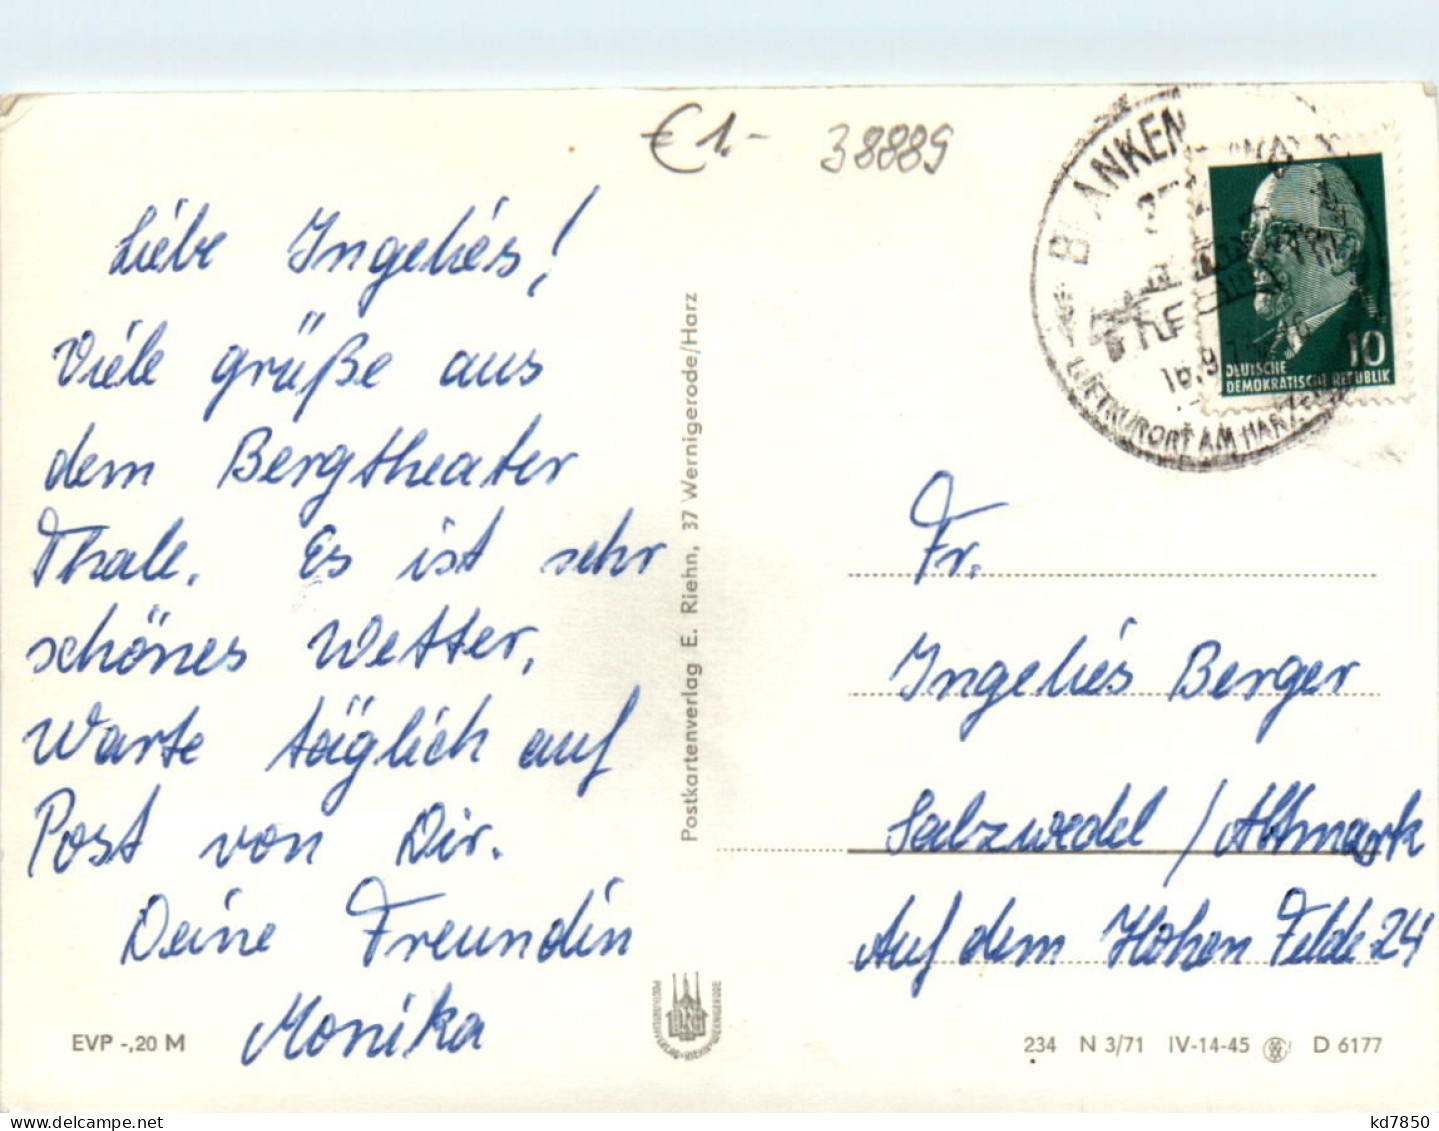 € 1.-
38889
Liebe Ingelies!
Viele grüße aus
dem Bergtheater
Thale. Es ist sehr
schönes Wetter.
Warte täglich auf
Post von Dir.
Deine Freundin
Monika
EVP -,20 M
Postkartenverlag E. Riehn, 37 Wernigerode/Harz
BLANKEN
LUFTKURORT AM HARZ
10
DEUTSCHE
DEMOKRATISCHE REPUBLIK
Fr.
Ingelies Berger
Salzwedel / Altmark
Auf dem Hohen Felde 24
234 N 3/71 IV-14-45 D 6177
kd7850